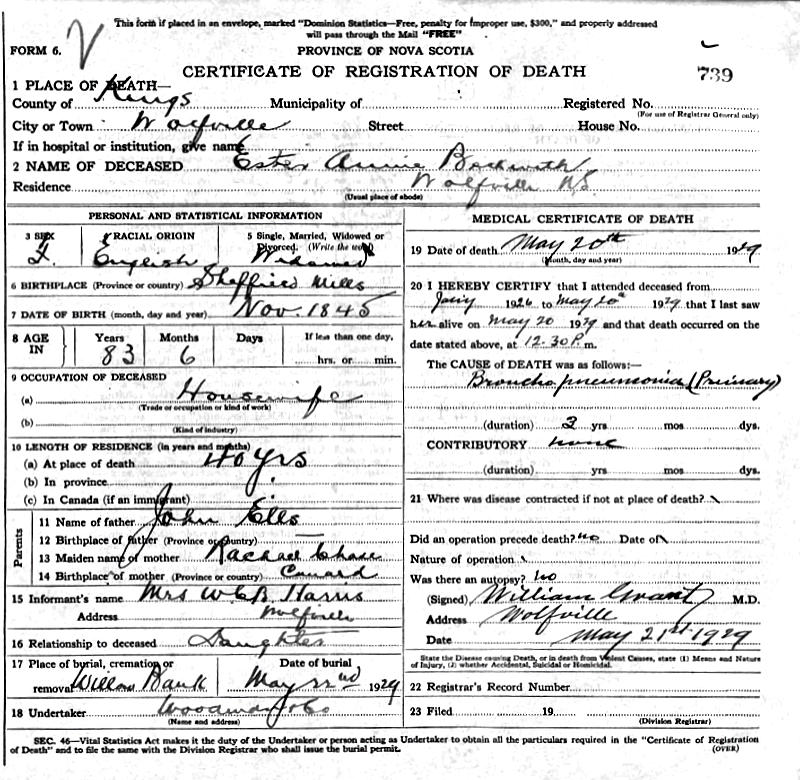 This form if placed in an envelope, marked "Dominion Statistics—Free, penalty for improper use, $300," and properly addressed
will pass through the Mail "FREE"
FORM 6.
PROVINCE OF NOVA SCOTIA
CERTIFICATE OF REGISTRATION OF DEATH
739
1 PLACE OF DEATH—
County of Kings Municipality of Registered No.
(For use of Registrar General only)
City or Town Wolfville Street House No.
If in hospital or institution, give name
2 NAME OF DECEASED Ester Annie Beckwith
Residence Wolfville N.S.
(Usual place of abode)
PERSONAL AND STATISTICAL INFORMATION
3 SEX 4 RACIAL ORIGIN 5 Single, Married, Widowed or Divorced. (Write the word)
F. English Widowed
6 BIRTHPLACE (Province or country) Sheffield Mills
7 DATE OF BIRTH (month, day and year) Nov. 1845
8 AGE IN Years Months Days If less than one day,
83 6 hrs. or min.
9 OCCUPATION OF DECEASED
(a) Housewife
(Trade or occupation or kind of work)
(b)
(Kind of industry)
10 LENGTH OF RESIDENCE (in years and months)
(a) At place of death 40 yrs
(b) In province
(c) In Canada (if an immigrant)
Parents
11 Name of father John Ells
12 Birthplace of father (Province or country)
13 Maiden name of mother Rachael Chase
14 Birthplace of mother (Province or country) Canard
15 Informant's name Mrs W.C.B. Harris
Address Wolfville
16 Relationship to deceased Daughter
17 Place of burial, cremation or removal Willow Bank Date of burial May 22nd 1929
18 Undertaker Woodman & Co
(Name and address)
MEDICAL CERTIFICATE OF DEATH
19 Date of death May 20th 1929
(Month, day and year)
20 I HEREBY CERTIFY that I attended deceased from
1926 to May 20th 1929 that I last saw
her alive on May 20 1929 and that death occurred on
date stated above, at 12.30 P. m.
The CAUSE of DEATH was as follows:—
Broncho pneumonia (Primary)
(duration) 2 yrs mos dys.
CONTRIBUTORY none
(duration) yrs mos dys.
21 Where was disease contracted if not at place of death? \
Did an operation precede death? no Date of \
Nature of operation \
Was there an autopsy? no
(Signed) William Grant M.D.
Address Wolfville
Date May 21st 1929
State the Disease causing Death, or in death from Violent Causes, state (1) Means and Nature
of Injury, (2) whether Accidental, Suicidal or Homicidal.
22 Registrar's Record Number
23 Filed 19
(Division Registrar)
SEC. 46—Vital Statistics Act makes it the duty of the Undertaker or person acting as Undertaker to obtain all the particulars required in the "Certificate of Registration
of Death" and to file the same with the Division Registrar who shall issue the burial permit. (OVER)